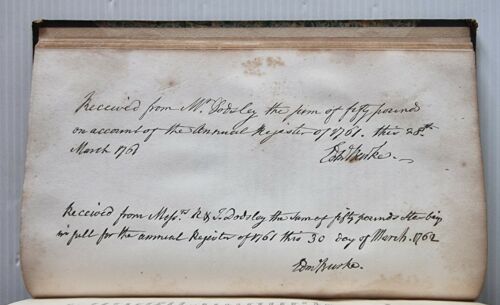 Received from Mr Dodsley the sum of fifty pounds
on account of the Annual Register of 1761. this 28th
March 1761
Edm Burke.
Received from Messrs R & J. Dodsley the Sum of fifty pounds Sterling
in full for the annual Register of 1761 this 30 day of March. 1762
Edm Burke.